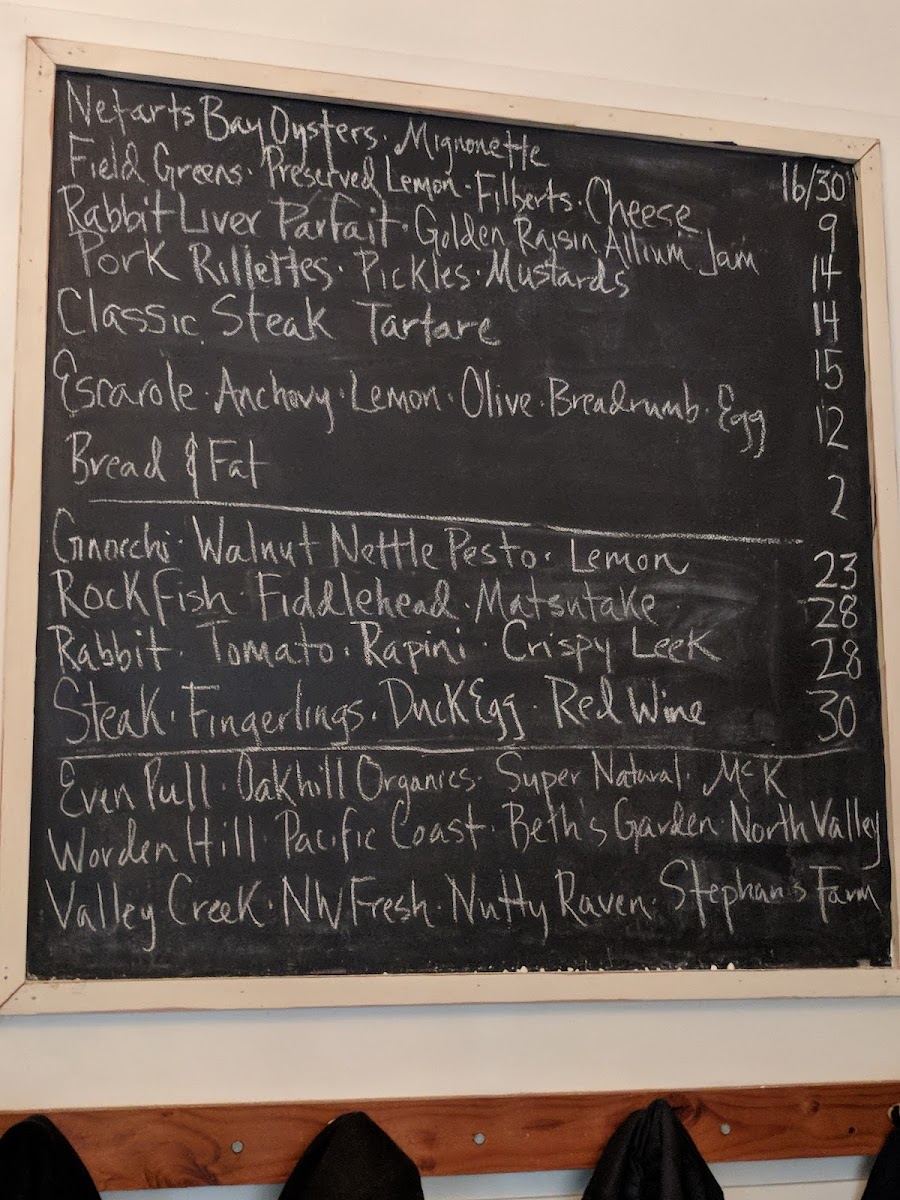 Netarts Bay Oysters · Mignonette 16/30
Field Greens · Preserved Lemon · Filberts · Cheese 9
Rabbit Liver Parfait · Golden Raisin Allium Jam 14
Pork Rillettes · Pickles · Mustards 14
Classic Steak Tartare 15
Escarole · Anchovy · Lemon · Olive · Breadcrumb · Egg 12
Bread & Fat 2
Gnocchi · Walnut Nettle Pesto · Lemon 23
Rockfish · Fiddlehead · Matsutake 28
Rabbit · Tomato · Rapini · Crispy Leek 28
Steak · Fingerlings · Duck Egg · Red Wine 30
Even Pull · Oakhill Organics · Super Natural · McK
Worden Hill · Pacific Coast · Beth's Garden · North Valley
Valley Creek · NW Fresh · Nutty Raven · Stephan's Farm